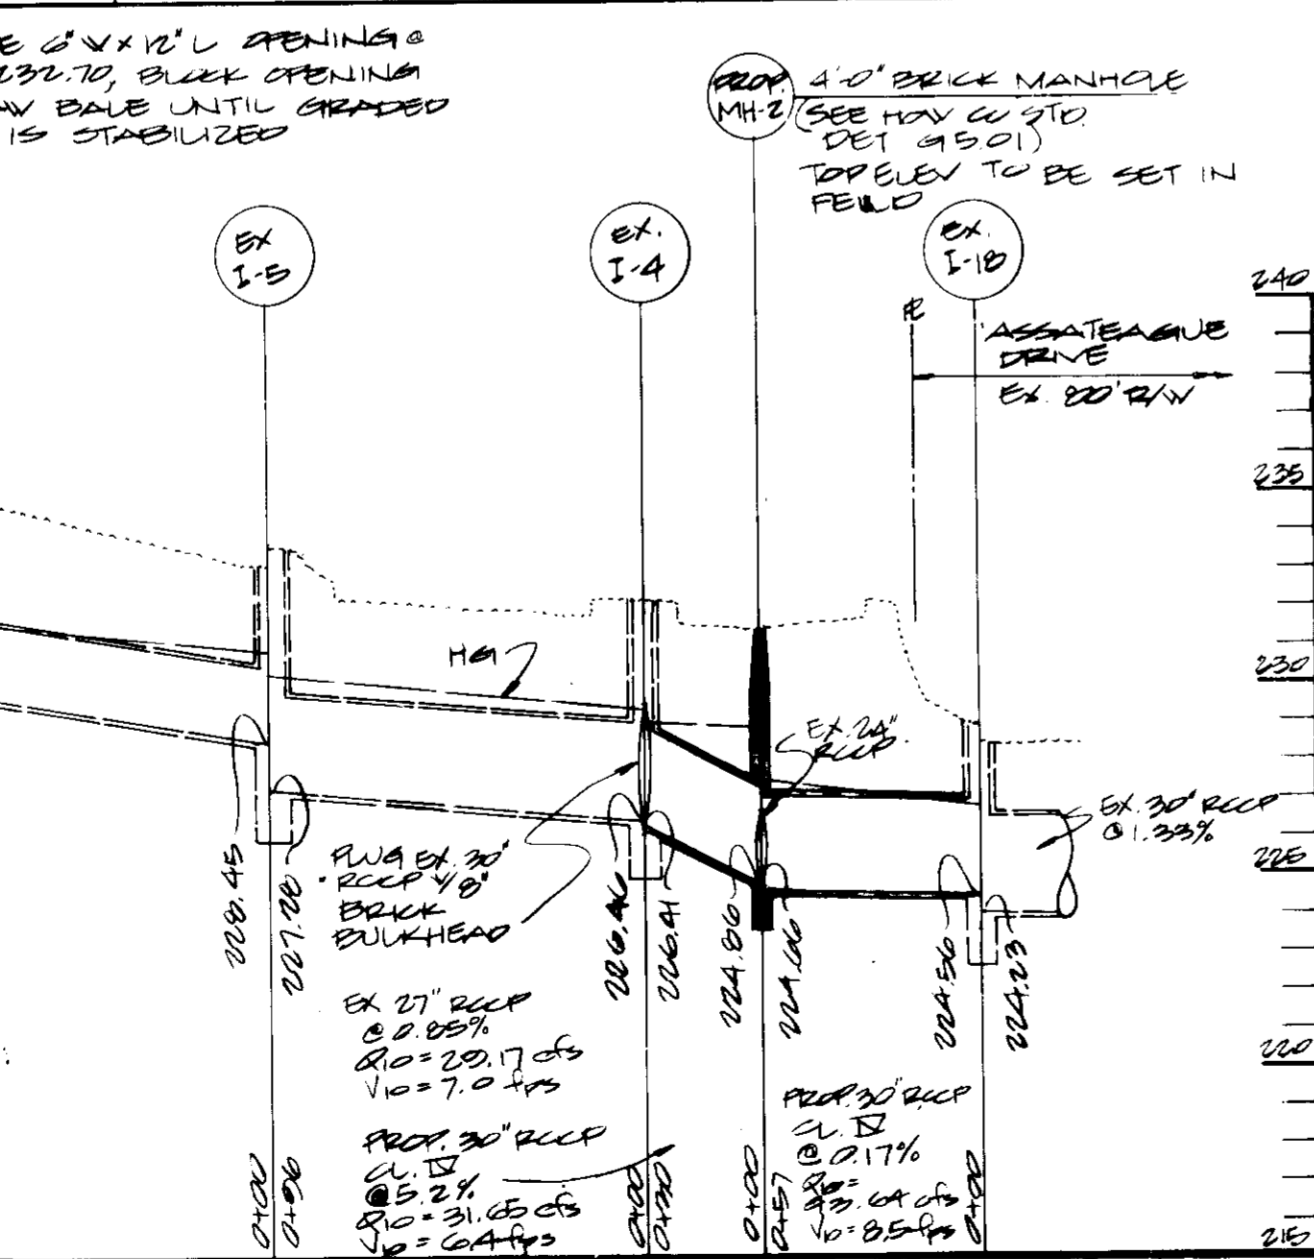 E 6" W x 12" L OPENING @
232.70, BLOCK OPENING
AW BALE UNTIL GRADED
IS STABILIZED
PROP. MH-2
4'-0" BRICK MANHOLE
(SEE HOW CO STD.
DET G5.01)
TOP ELEV TO BE SET IN
FEILD
EX
I-5
EX.
I-4
EX.
I-18
ASSATEAGUE
DRIVE
EX. 80' R/W
240
235
230
225
220
215
HG
EX. 24"
RCCP
EX. 30" RCCP
@ 1.33%
PLUG EX. 30"
RCCP W/8"
BRICK
BULKHEAD
228.45
227.28
226.46
226.41
224.86
224.66
224.56
224.23
EX 27" RCCP
@ 0.85%
Q10 = 29.17 cfs
V10 = 7.0 fps
PROP. 30" RCCP
CL. IV
@ 5.2%
Q10 = 31.65 cfs
V10 = 6.4 fps
PROP. 30" RCCP
CL. IV
@ 0.17%
Q10 =
43.64 cfs
V10 = 8.5 fps
0+00
0+96
0+00
0+30
0+00
0+57
0+00